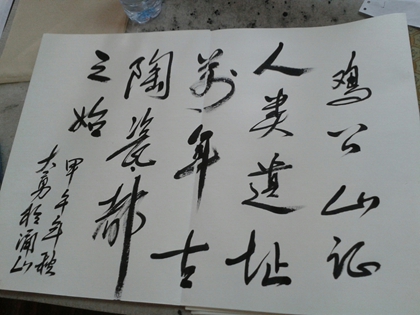 鸡公山证
人类遗址
萬年古
陶瓷都
之始
甲午年秋
大勇於山